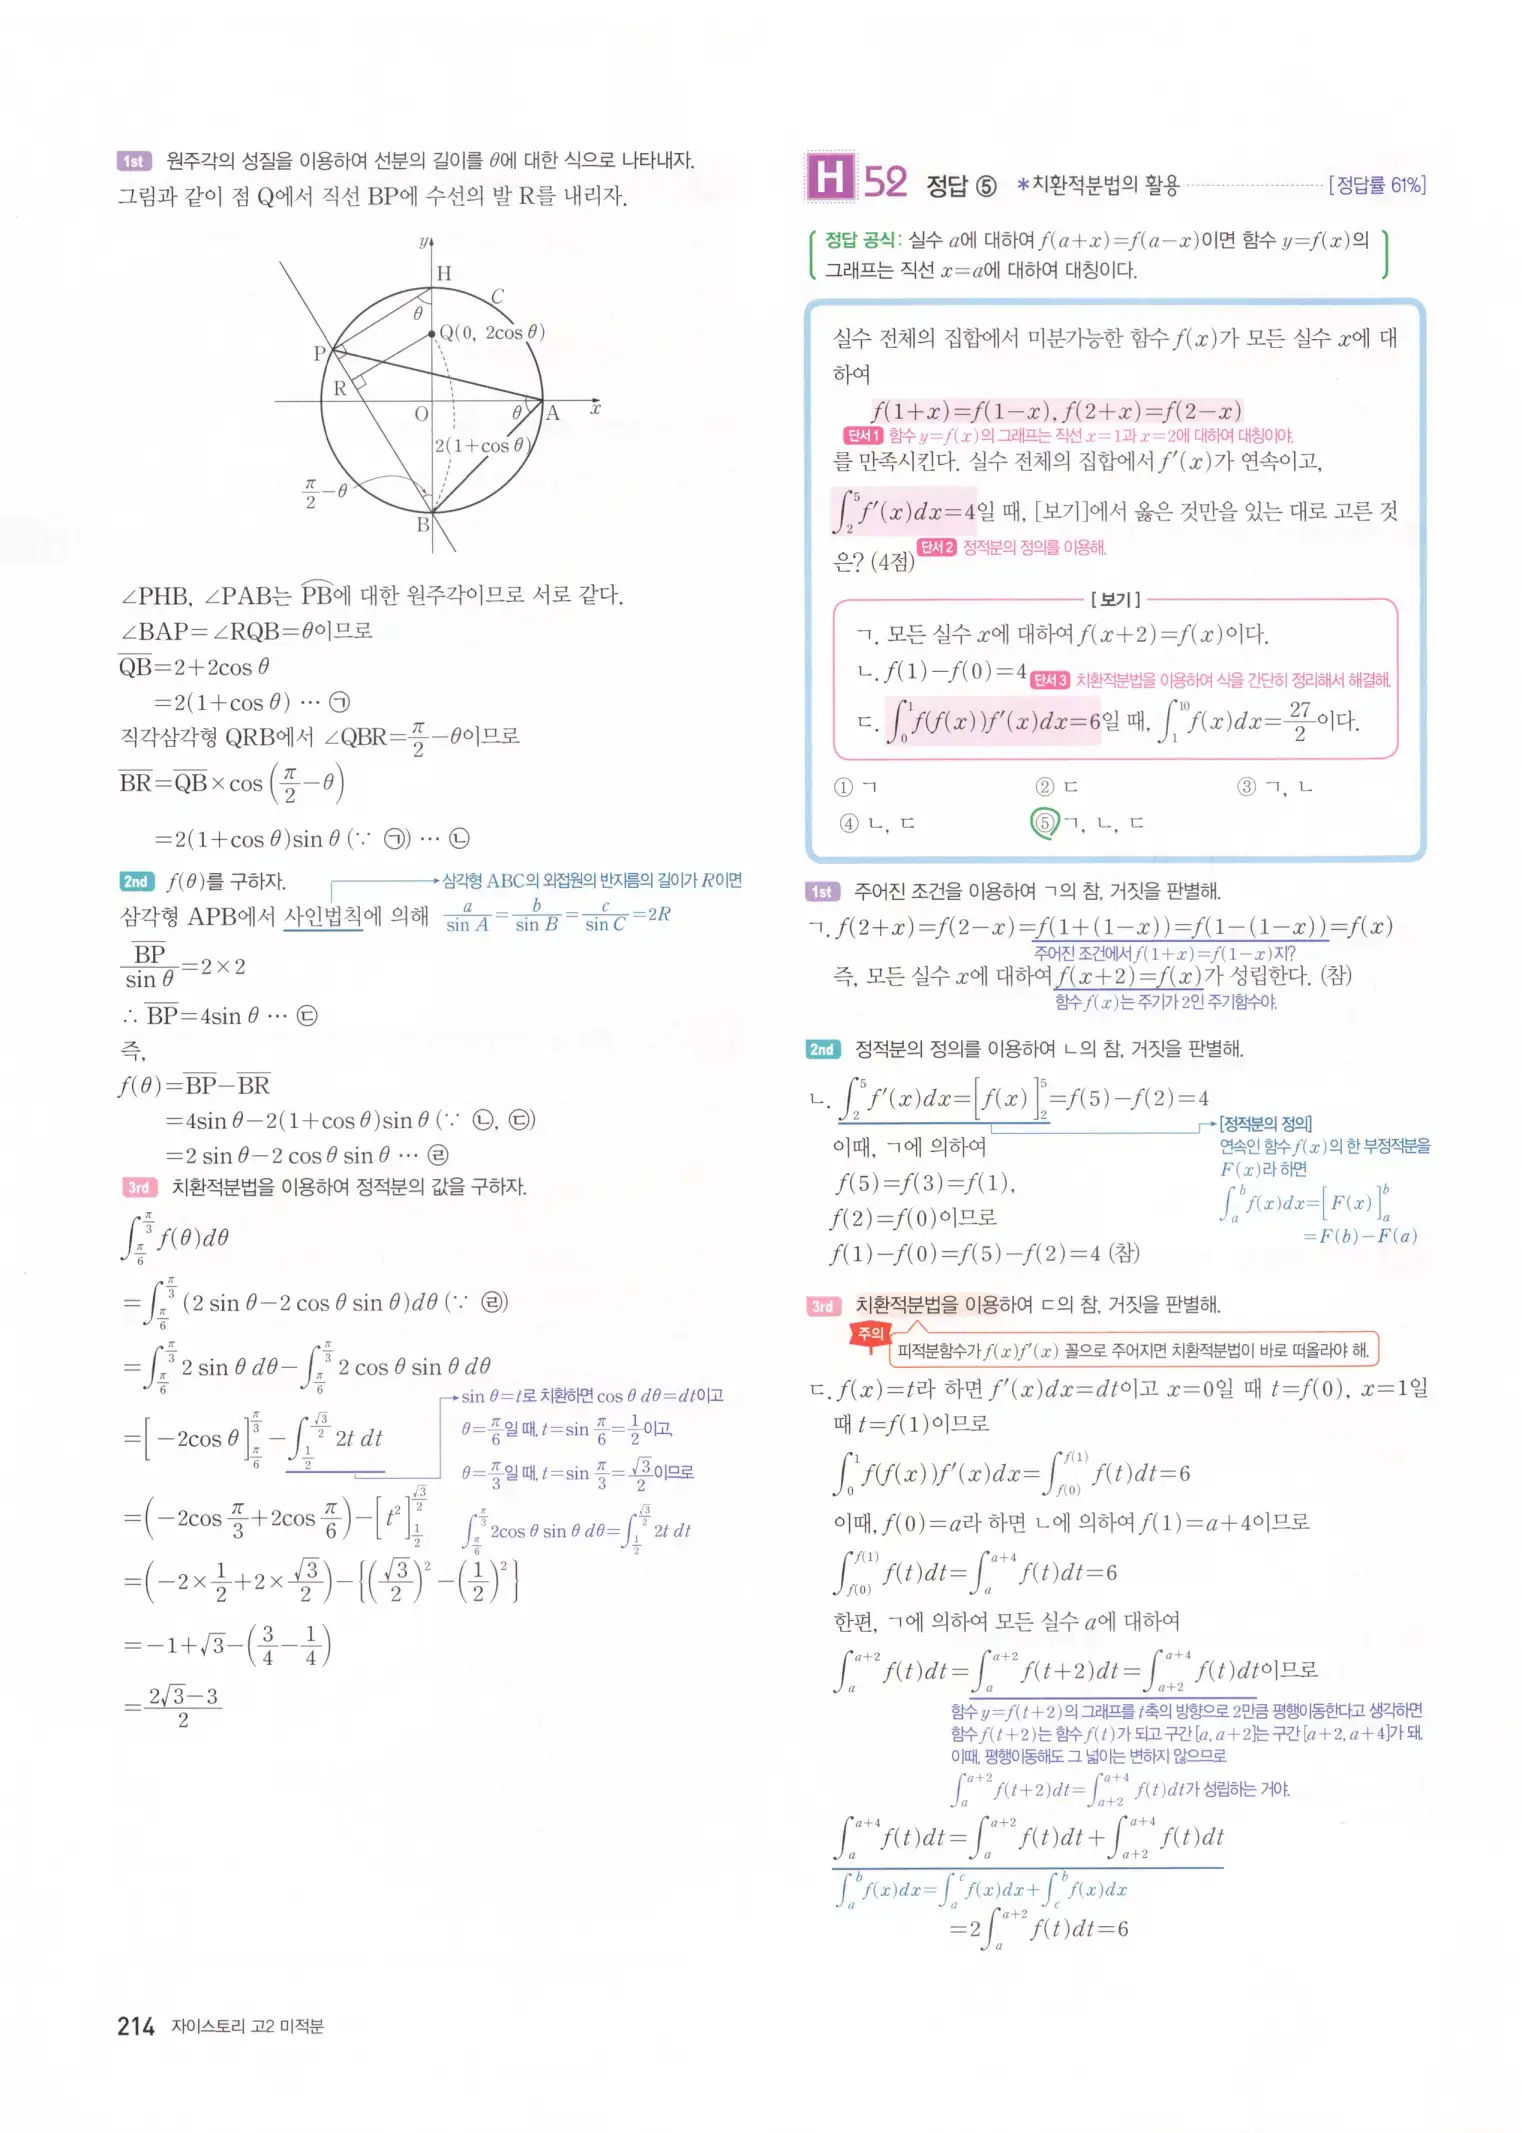 1st 원주각의 성질을 이용하여 선분의 길이를 θ에 대한 식으로 나타내자.
그림과 같이 점 Q에서 직선 BP에 수선의 발 R를 내리자.
y
H
C
θ
Q(0, 2cos θ)
P
R
O
θ
A
x
2(1+cos θ)
π/2−θ
B
∠PHB, ∠PAB는 PB에 대한 원주각이므로 서로 같다.
∠BAP=∠RQB=θ이므로
QB=2+2cos θ
=2(1+cos θ) … ㉠
직각삼각형 QRB에서 ∠QBR=π/2−θ이므로
BR=QB×cos(π/2−θ)
=2(1+cos θ)sin θ (∵ ㉠) … ㉡
2nd f(θ)를 구하자.
삼각형 ABC의 외접원의 반지름의 길이가 R이면
삼각형 APB에서 사인법칙에 의해 a/sin A=b/sin B=c/sin C=2R
BP/sin θ=2×2
∴ BP=4sin θ … ㉢
즉,
f(θ)=BP−BR
=4sin θ−2(1+cos θ)sin θ (∵ ㉡, ㉢)
=2 sin θ−2 cos θ sin θ … ㉣
3rd 치환적분법을 이용하여 정적분의 값을 구하자.
∫_{π/6}^{π/3} f(θ)dθ
=∫_{π/6}^{π/3} (2 sin θ−2 cos θ sin θ)dθ (∵ ㉣)
=∫_{π/6}^{π/3} 2 sin θ dθ−∫_{π/6}^{π/3} 2 cos θ sin θ dθ
sin θ=t로 치환하면 cos θ dθ=dt이고
=[−2cos θ]_{π/6}^{π/3}−∫_{1/2}^{√3/2} 2t dt
θ=π/6일 때, t=sin π/6=1/2이고,
θ=π/3일 때, t=sin π/3=√3/2이므로
=(−2cos π/3+2cos π/6)−[t²]_{1/2}^{√3/2}
∫_{π/6}^{π/3} 2cos θ sin θ dθ=∫_{1/2}^{√3/2} 2t dt
=(−2×1/2+2×√3/2)−{(√3/2)²−(1/2)²}
=−1+√3−(3/4−1/4)
=(2√3−3)/2
214 자이스토리 고2 미적분
H 52 정답 ⑤ *치환적분법의 활용 [정답률 61%]
정답 공식: 실수 a에 대하여 f(a+x)=f(a−x)이면 함수 y=f(x)의
그래프는 직선 x=a에 대하여 대칭이다.
실수 전체의 집합에서 미분가능한 함수 f(x)가 모든 실수 x에 대
하여
f(1+x)=f(1−x), f(2+x)=f(2−x)
단서1 함수 y=f(x)의 그래프는 직선 x=1과 x=2에 대하여 대칭이야.
를 만족시킨다. 실수 전체의 집합에서 f′(x)가 연속이고,
∫_{2}^{5} f′(x)dx=4일 때, [보기]에서 옳은 것만을 있는 대로 고른 것
은? (4점) 단서2 정적분의 정의를 이용해.
[보기]
ㄱ. 모든 실수 x에 대하여 f(x+2)=f(x)이다.
ㄴ. f(1)−f(0)=4 단서3 치환적분법을 이용하여 식을 간단히 정리해서 해결해.
ㄷ. ∫_{0}^{1} f(f(x))f′(x)dx=6일 때, ∫_{1}^{10} f(x)dx=27/2이다.
① ㄱ ② ㄷ ③ ㄱ, ㄴ
④ ㄴ, ㄷ ⑤ ㄱ, ㄴ, ㄷ
1st 주어진 조건을 이용하여 ㄱ의 참, 거짓을 판별해.
ㄱ. f(2+x)=f(2−x)=f(1+(1−x))=f(1−(1−x))=f(x)
주어진 조건에서 f(1+x)=f(1−x)지?
즉, 모든 실수 x에 대하여 f(x+2)=f(x)가 성립한다. (참)
함수 f(x)는 주기가 2인 주기함수야.
2nd 정적분의 정의를 이용하여 ㄴ의 참, 거짓을 판별해.
ㄴ. ∫_{2}^{5} f′(x)dx=[f(x)]_{2}^{5}=f(5)−f(2)=4
[정적분의 정의]
이때, ㄱ에 의하여
연속인 함수 f(x)의 한 부정적분을
F(x)라 하면
f(5)=f(3)=f(1),
∫_{a}^{b} f(x)dx=[F(x)]_{a}^{b}
f(2)=f(0)이므로
=F(b)−F(a)
f(1)−f(0)=f(5)−f(2)=4 (참)
3rd 치환적분법을 이용하여 ㄷ의 참, 거짓을 판별해.
주의 피적분함수가 f(x)f′(x) 꼴으로 주어지면 치환적분법이 바로 떠올라야 해.
ㄷ. f(x)=t라 하면 f′(x)dx=dt이고 x=0일 때 t=f(0), x=1일
때 t=f(1)이므로
∫_{0}^{1} f(f(x))f′(x)dx=∫_{f(0)}^{f(1)} f(t)dt=6
이때, f(0)=a라 하면 ㄴ에 의하여 f(1)=a+4이므로
∫_{f(0)}^{f(1)} f(t)dt=∫_{a}^{a+4} f(t)dt=6
한편, ㄱ에 의하여 모든 실수 a에 대하여
∫_{a}^{a+2} f(t)dt=∫_{a}^{a+2} f(t+2)dt=∫_{a+2}^{a+4} f(t)dt이므로
함수 y=f(t+2)의 그래프를 t축의 방향으로 2만큼 평행이동한다고 생각하면
함수 f(t+2)는 함수 f(t)가 되고 구간 [a, a+2]는 구간 [a+2, a+4]가 돼.
이때, 평행이동해도 그 넓이는 변하지 않으므로
∫_{a}^{a+2} f(t+2)dt=∫_{a+2}^{a+4} f(t)dt가 성립하는 거야.
∫_{a}^{a+4} f(t)dt=∫_{a}^{a+2} f(t)dt+∫_{a+2}^{a+4} f(t)dt
∫_{a}^{b} f(x)dx=∫_{a}^{c} f(x)dx+∫_{c}^{b} f(x)dx
=2∫_{a}^{a+2} f(t)dt=6